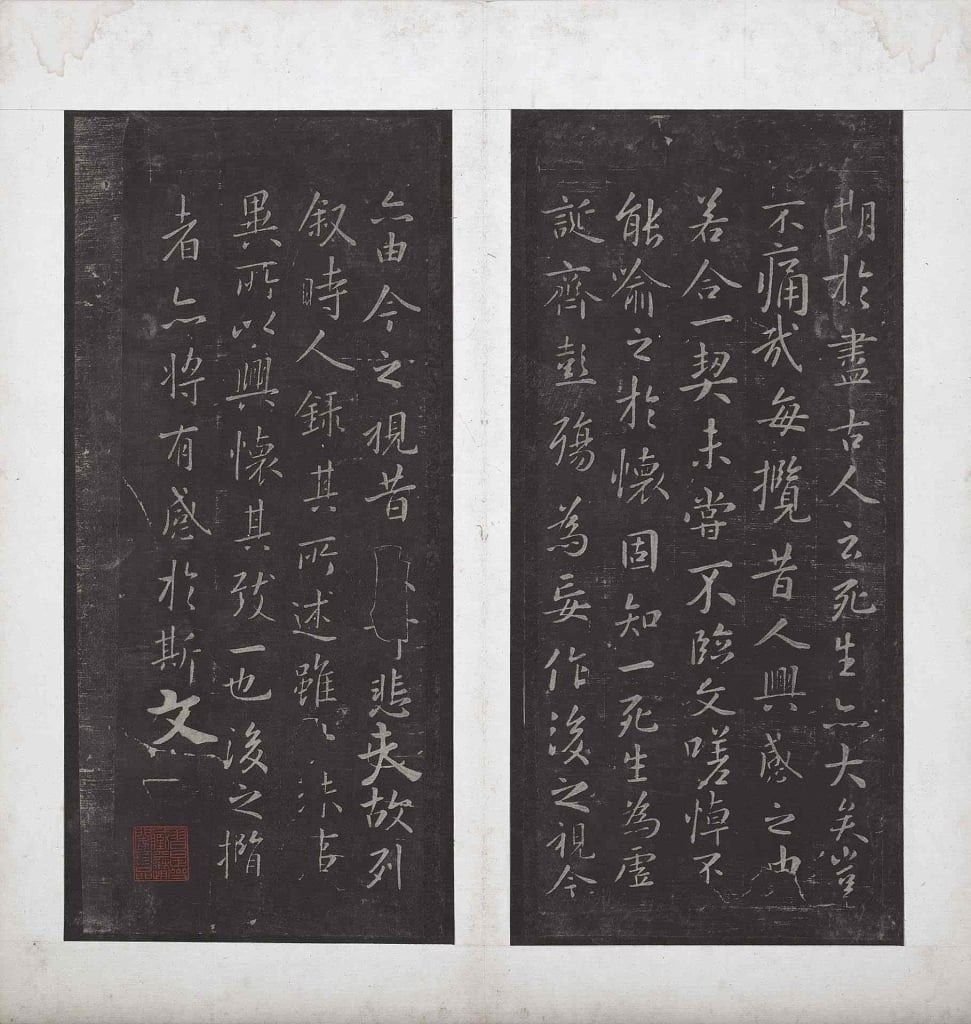 期於盡古人云死生亦大矣豈
不痛哉每攬昔人興感之由
若合一契未嘗不臨文嗟悼不
能喻之於懷固知一死生為虛
誕齊彭殤為妄作後之視今
亦由今之視昔 悲夫故列
叙時人錄其所述雖
異所以興懷其致一也後之攬
者亦將有感於斯文